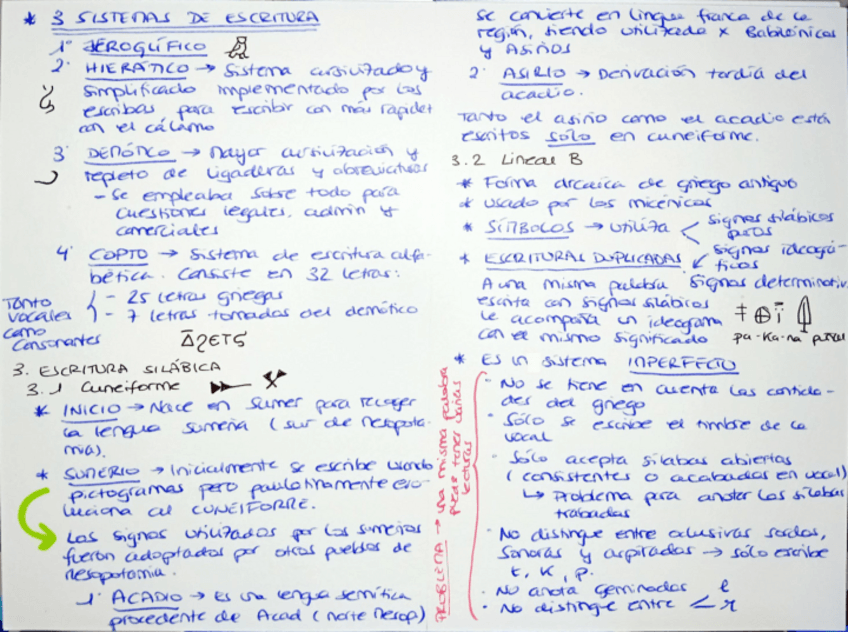 * 3 SISTEMAS DE ESCRITURA
1º JEROGLÍFICO
2º HIERÁTICO → Sistema cursivizado y
simplificado implementado por los
escribas para escribir con más rapidez
con el cálamo
3º DEMÓTICO → Mayor cursivización y
repleto de ligaduras y abreviaturas
- Se empleaba sobre todo para
cuestiones legales, admin y
comerciales
4º COPTO → Sistema de escritura alfa-
bética. Consiste en 32 letras:
- 25 letras griegas
- 7 letras tomadas del demótico
Tanto
vocales
como
consonantes
3. ESCRITURA SILÁBICA
3.1 Cuneiforme
* INICIO → Nace en Sumer para recoger
la lengua sumeria (sur de Mesopota-
mia).
* SUMERIO → Inicialmente se escribe usando
pictogramas pero paulatinamente evo-
luciona al CUNEIFORME.
Los signos utilizados por los sumerios
fueron adoptados por otros pueblos de
Mesopotamia.
1º ACADIO → Es una lengua semítica
procedente de Acad (norte Mesop)
se convierte en lingua franca de la
región, siendo utilizada x Babilónicos
y Asirios
2º ASIRIO → Derivación tardía del
acadio.
Tanto el asirio como el acadio están
escritos solo en cuneiforme.
3.2 Lineal B
* Forma arcaica de griego antiguo
* usado por los micénicos
* SÍMBOLOS → utiliza
signos silábicos
puros
signos ideográ-
ficos
signos determinativ.
* ESCRITURAS DUPLICADAS
A una misma palabra
escrita con signos silábicos
le acompaña un ideograma
con el mismo significado
pa-ka-na
* ES un sistema IMPERFECTO
PROBLEMA → una misma palabra
puede tener varias
lecturas
· No se tiene en cuenta las cantida-
des del griego
· Sólo se escribe el timbre de la
vocal
· Sólo acepta sílabas abiertas
(consistentes o acabadas en vocal)
↳ Problema para anotar las sílabas
trabadas
· No distingue entre oclusivas sordas,
sonoras y aspiradas → sólo escribe
t, k, p.
· No anota geminadas
· No distingue entre < l
r